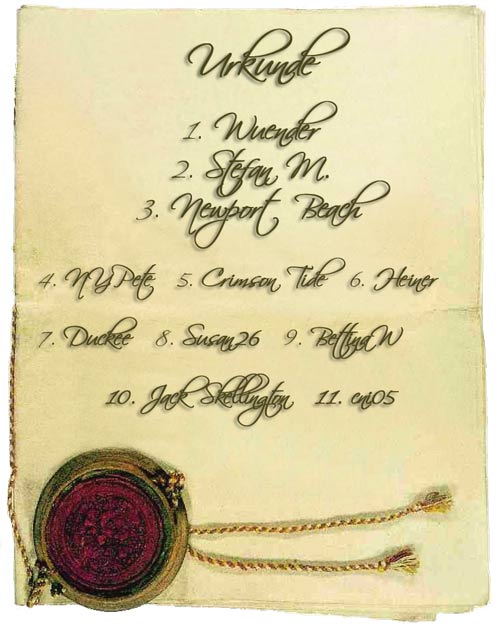 Urkunde
1. Wuender
2. Stefan M.
3. Newport Beach
4. NYPete 5. Crimson Tide 6. Heiner
7. Duckee 8. Susan26 9. BettinaW
10. Jack Skellington 11. cni05